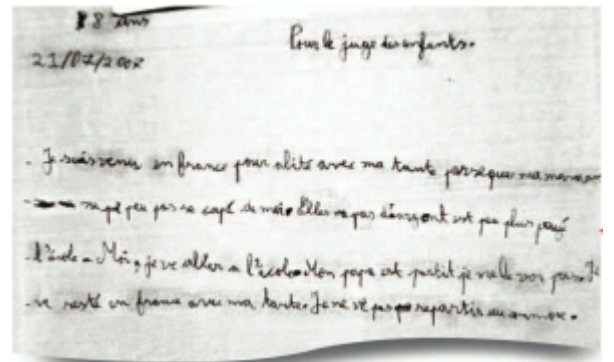 8 ans
21/07/200
Pour le juge des enfants.
- Je suis venu en france pour abité avec ma tante parseque ma maman
ne pe pas se capé de moi. Elle na pas d'argent est peu plus payé
l'école. Moi, je ve aller a l'école. Mon papa est partit je ne le voi pas. Je
ve resté en france avec ma tante. Je ne ve pas repartir au